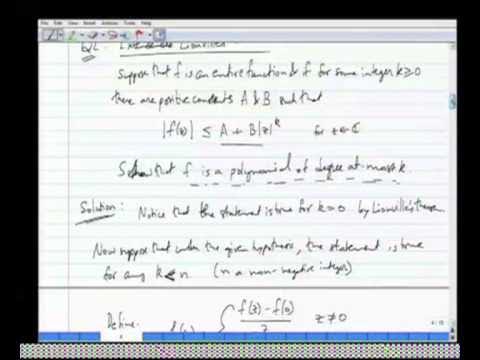 Q2. Extended Liouville's
Suppose that f is an entire function & if for some integer k ≥ 0
there are positive constants A & B such that
|f(z)| ≤ A + B|z|^k for z ∈ ℂ
Show that f is a polynomial of degree at most k.
Solution: Notice that the statement is true for k=0 by Liouville's theorem
Now suppose that under the given hypothesis, the statement is true
for any k < n (n a non-negative integer)
Define { f(z) - f(0) / z z ≠ 0